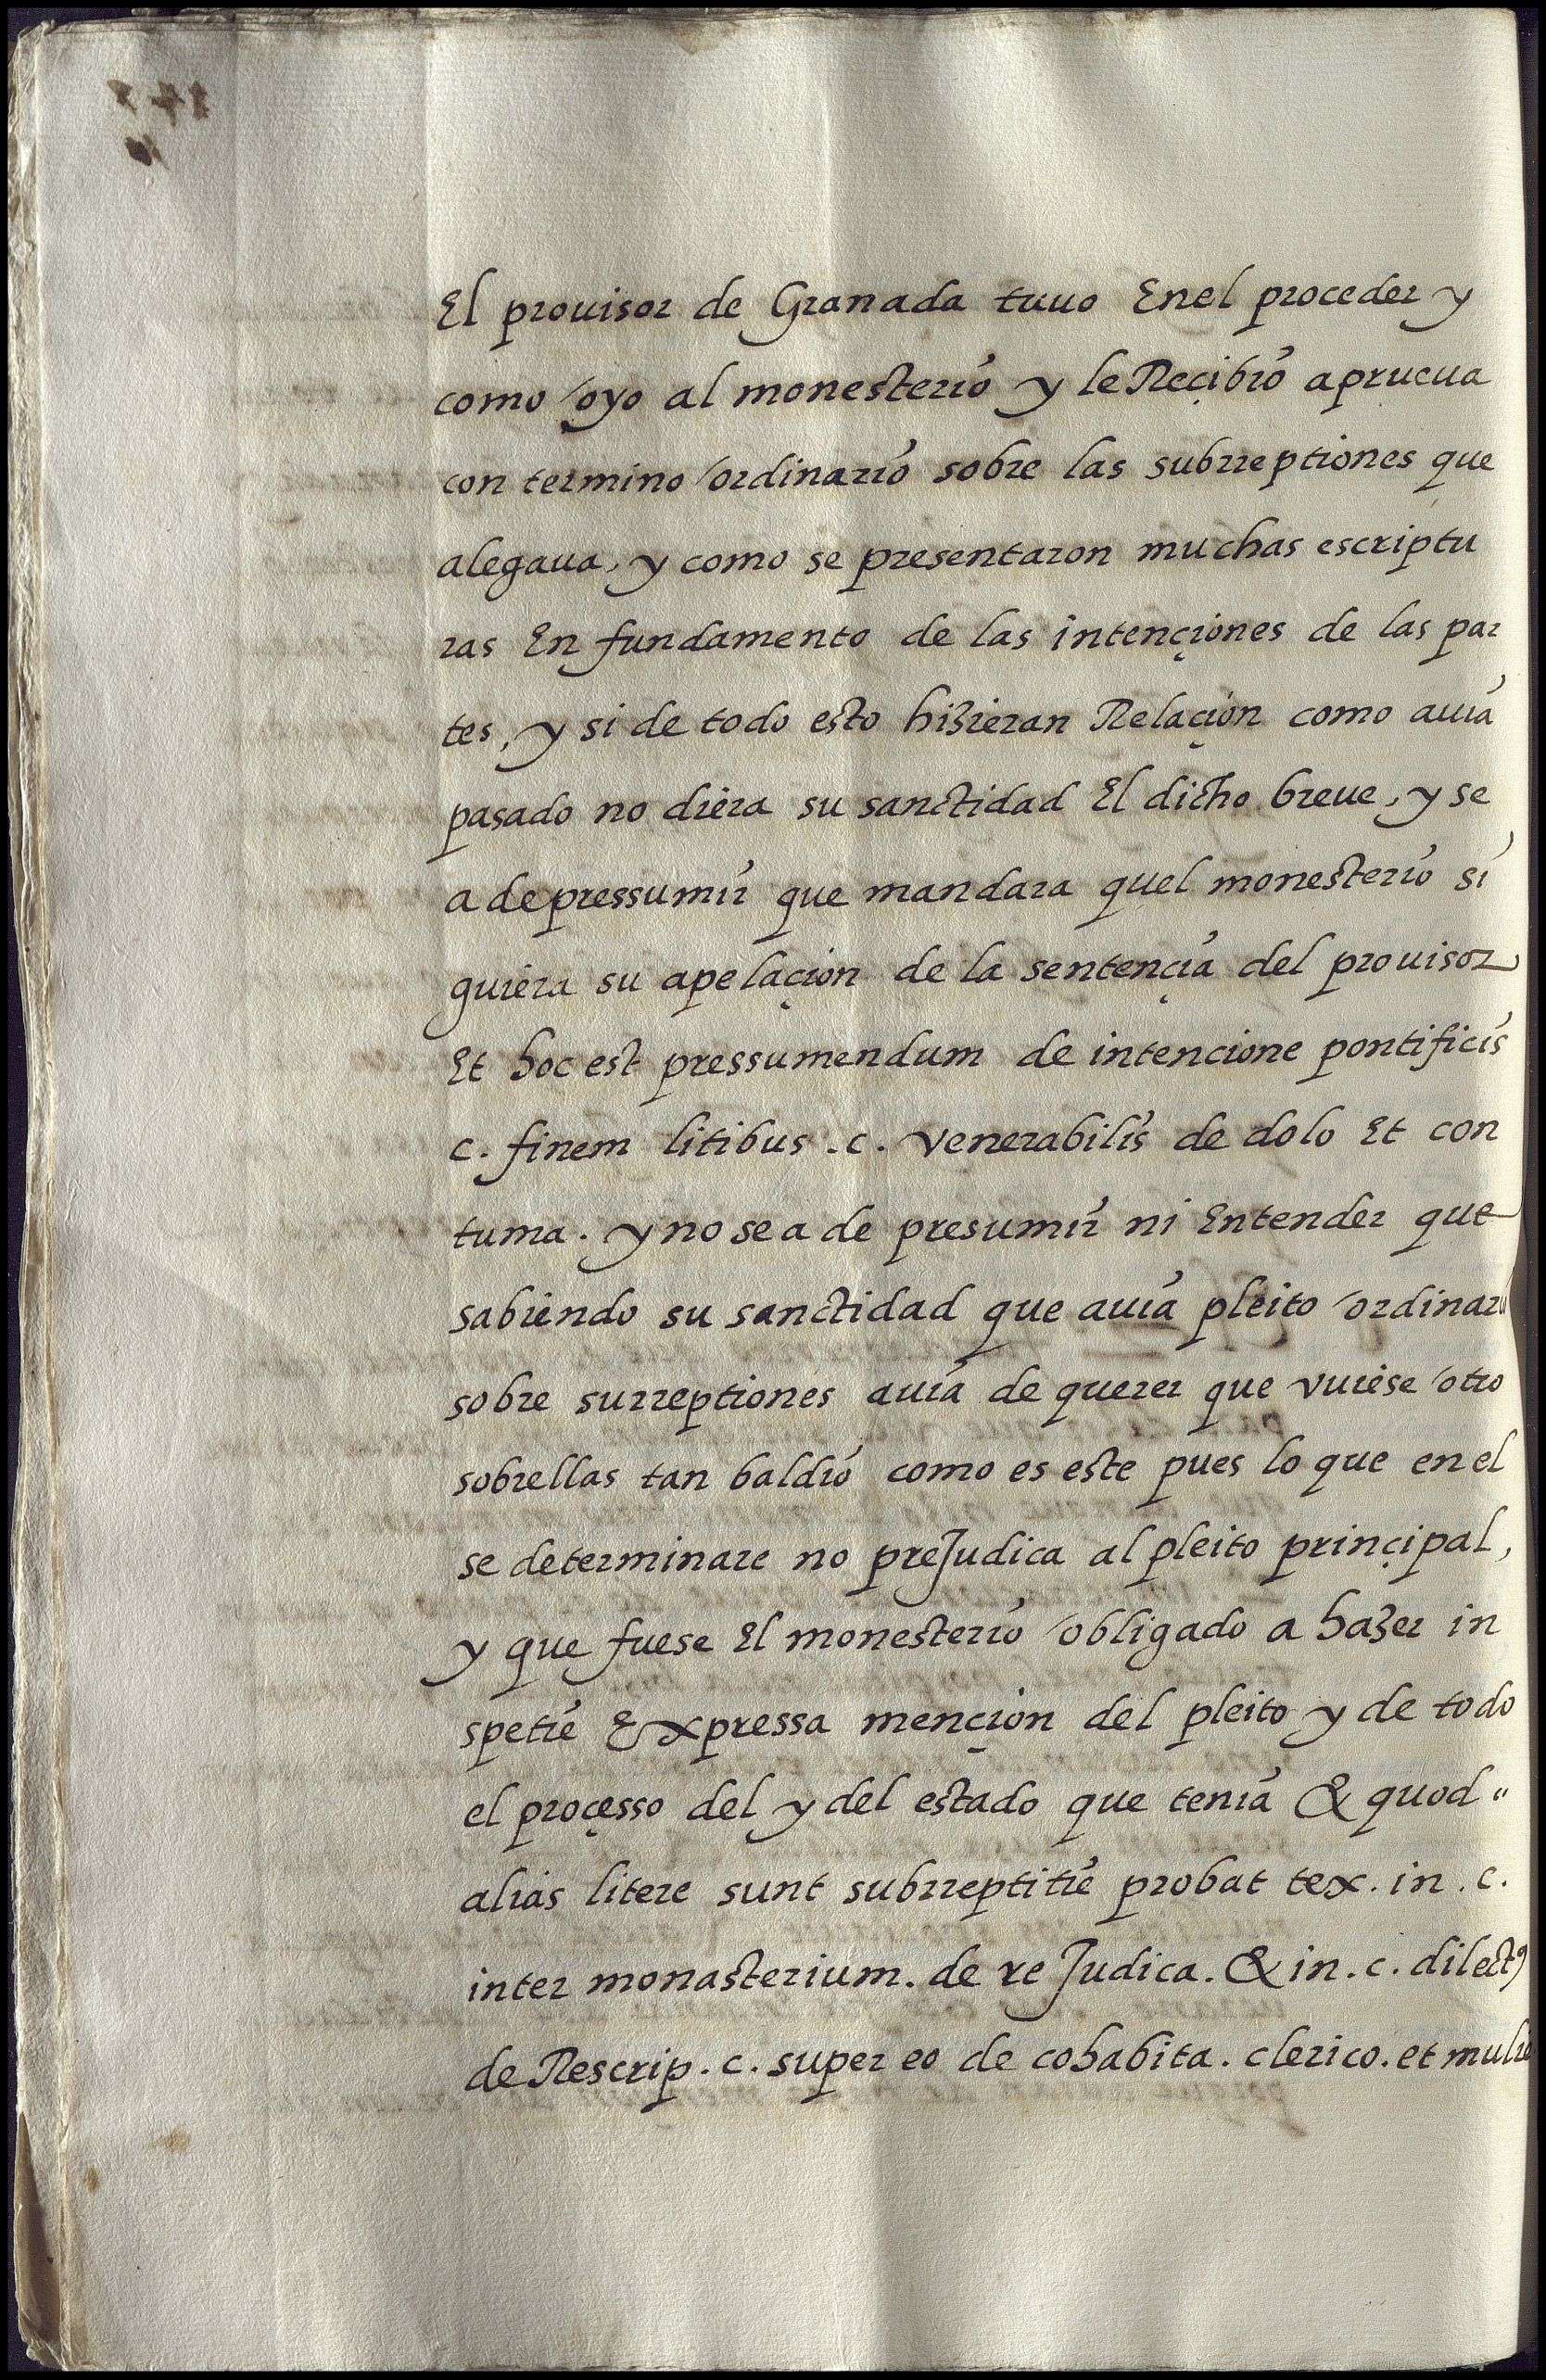 El prouisor de Granada tuuo Enel proceder y
como oyo al monesterio y le Reçibio aprueua
con termino ordinario sobre las subrreptiones que
alegaua, y como se presentaron muchas escriptu
ras En fundamento de las intençiones de las par
tes, y si de todo esto hizieran Relaçion como auia
pasado no diera su sanctidad El dicho breue, y se
a de pressumir que mandara quel monesterio si
guiera su apelaçion de la sentençia del prouisor
Et hoc est pressumendum de intencione pontificis
c. finem litibus .c. venerabilis de dolo Et con
tuma. y no se a de presumir ni Entender que
sabiendo su sanctidad que auia pleito ordinari
sobre surreptiones auia de querer que vuiese otro
sobrellas tan baldio como es este pues lo que en el
se determinare no preJudica al pleito prinçipal,
y que fuese El monesterio obligado a hazer in
spetie Expressa mençion del pleito y de todo
el proçesso del y del estado que tenia & quod "
alias litere sunt subrreptitie probat tex. in. c.
inter monasterium. de re Judica. & in. c. dilectꝰ
de Rescrip. c. super eo de cohabita. clerico. et mulie